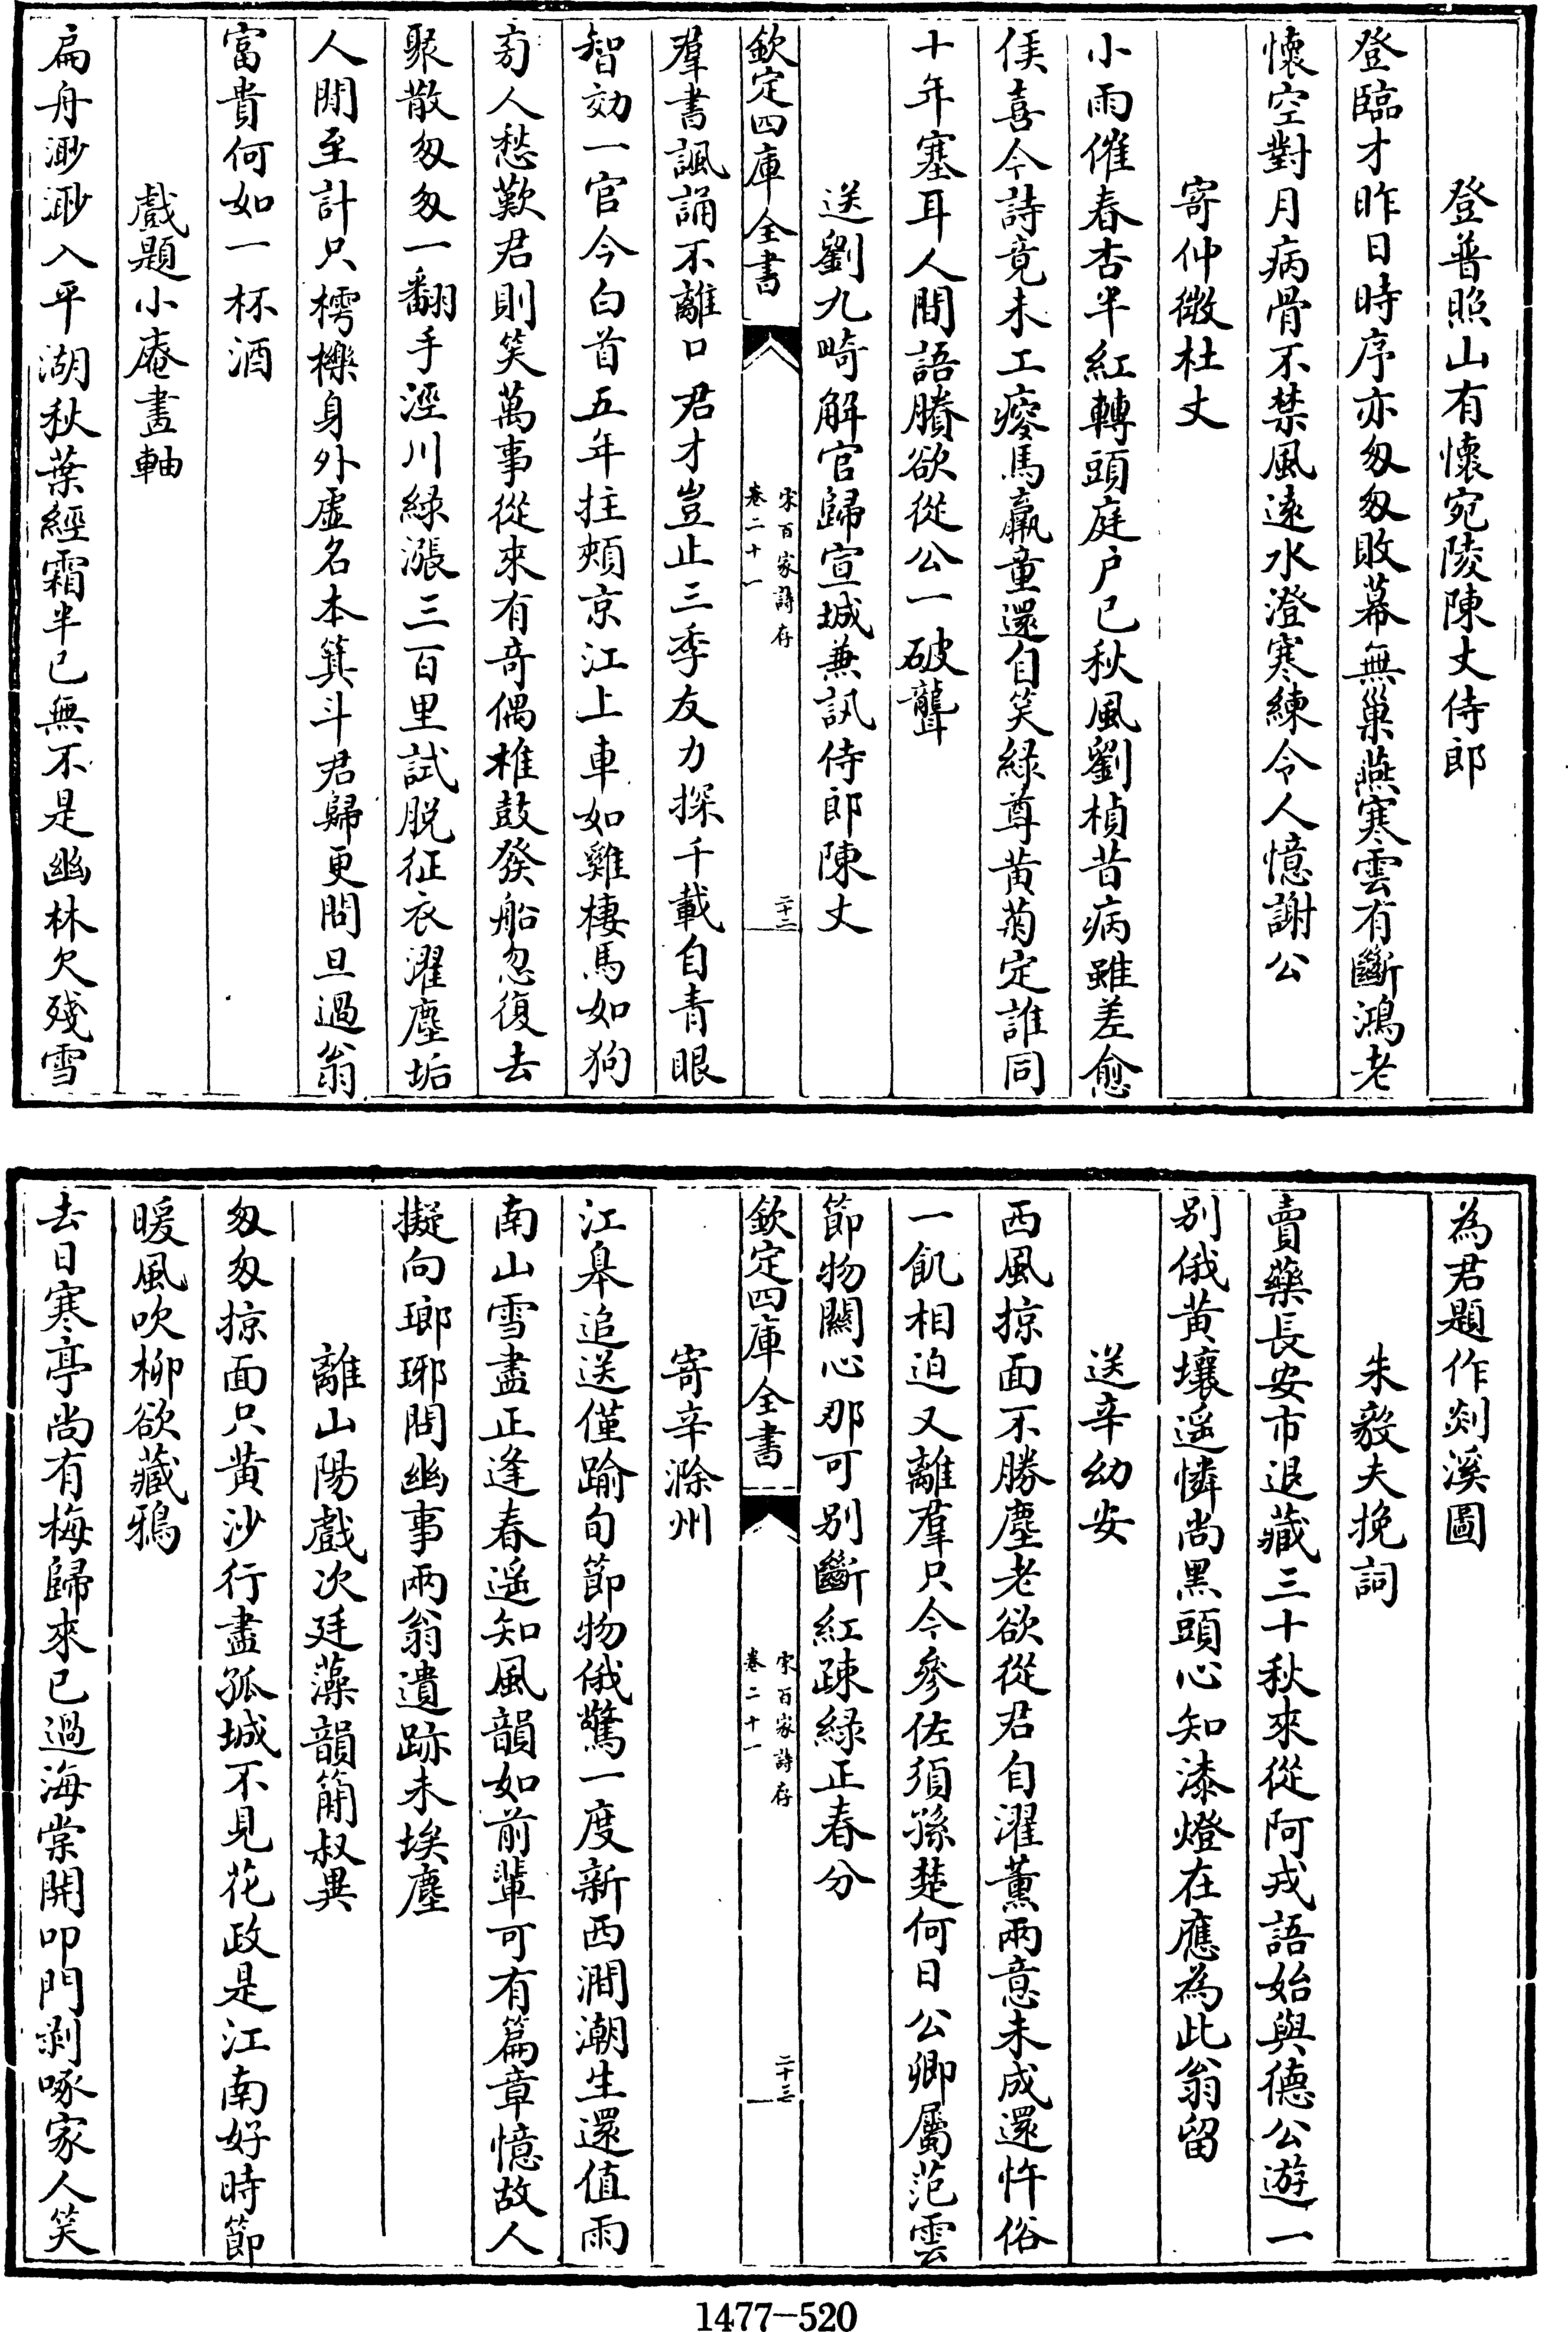 登普照山有懷宛陵陳丈侍郎
登臨才昨日時序亦匆匆敗幕無巢燕寒雲有斷鴻老
懷空對月病骨不禁風遠水澄寒練令人憶謝公
寄仲微杜丈
小雨催春杏半紅轉頭庭户已秋風劉楨昔病雖差愈
侯喜今詩竟未工瘦馬羸童還自笑緑尊黄菊定誰同
十年塞耳人間語賸欲從公一破聾
送劉九畸解官歸宣城兼訊侍郎陳丈
欽定四庫全書
宋百家詩存
卷二十一
二十二
羣書諷誦不離口君才豈止三季友力探千載自青眼
智効一官今白首五年拄頰京江上車如雞棲馬如狗
旁人愁歎君則笑萬事從來有奇偶椎鼓發船忽復去
聚散匆匆一翻手涇川緑漲三百里試脱征衣濯塵垢
人間至計只樗櫟身外虚名本箕斗君歸更問旦過翁
富貴何如一杯酒
戲題小庵畫軸
扁舟渺渺入平湖秋葉經霜半已無不是幽林欠殘雪
為君題作剡溪圖
朱毅夫挽詞
賣藥長安市退藏三十秋來從阿戎語始與德公遊一
别俄黄壤遥憐尚黑頭心知漆燈在應為此翁留
送辛幼安
西風掠面不勝塵老欲從君自濯薰兩意未成還忤俗
一飢相迫又離羣只今參佐須孫楚何日公卿屬范雲
節物關心那可别斷紅疎緑正春分
欽定四庫全書
宋百家詩存
卷二十一
二十三
寄辛滁州
江臯追送僅踰旬節物俄驚一度新西澗潮生還值雨
南山雪盡正逢春遥知風韻如前輩可有篇章憶故人
擬向瑯琊問幽事兩翁遺跡未埃塵
離山陽戲次廷藻韻簡叔異
匆匆掠面只黄沙行盡孤城不見花政是江南好時節
暖風吹柳欲藏鴉
去日寒亭尚有梅歸來已過海棠開叩門剥啄家人笑
1477-520